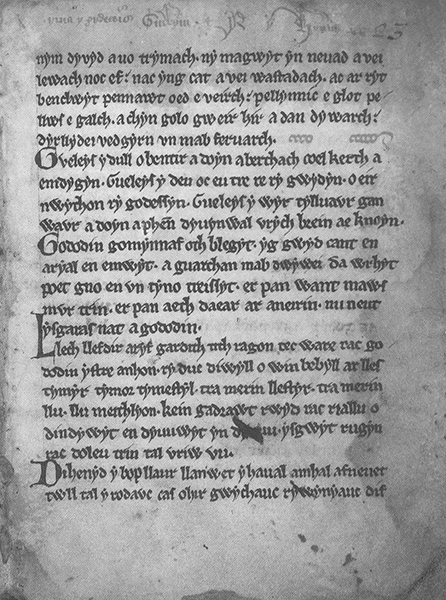 nym dyvyd a uo trymach. ny magwyt yn neuad a vei
lewach noc ef. nac yng cat a vei wastadach. ac ar ryt
benclwyt pennawt oed e veirch. pellynnic e glot pe
llws e galch. a chyn golo gweir hir a dan dywarch.
dyrllydei vedgyrn vn mab feruarch.
Gueleys y dull o bentir a doyn aberthach coel kerth a
emdygyn. Gueleys y deu oc eu tre re ry gwydyn. o eir
nwython ry godessyn. Gueleys y wyr tylluavr gan
wavr a doyn a phen dyuynwal vrych brein ae knoyn.
Gododin gomynnaf oth blegyt. yg gwyd cant en
aryal en emwyt. a guarchan mab dwywei da wrhyt
poet gno en vn tyno treissyt. er pan want maws
mvr trin. er pan aeth daear ar aneirin. nu neut
ysgaras nat a gododin.
Llech llefdir aryf gardith tith ragon tec ware rac go
dodin ystre anhon. ry duc diwyll o win bebyll ar lles
tymyr tymor tymestyl. tra merin llestyr. tra merin
llu. llu meithlyon. kein gadrawt rwyd rac riallu o
dindywyt en dyuuwyt yn ysgwyt rugyn
rac doleu trin tal vriw vu.
Dihenyd y bop llaur llanwet y haual amhal afneuet
twll tal y rodavc cas ohir gwychauc rywynyauc dif